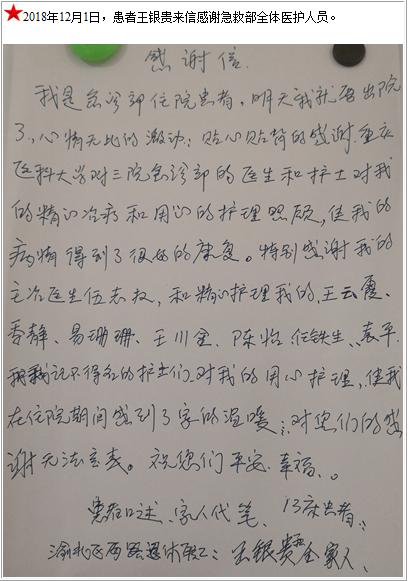 2018年12月1日，患者王银贵来信感谢急救部全体医护人员。
感谢信
我是急诊部住院患者，明天我就要出院
了，心情无比的激动；贴心贴背的感谢重庆
医科大学附三院急诊部的医生和护士对我
的精心治疗和用心的护理照顾，使我的
病情得到了很好的康复。特别感谢我的
主治医生伍志权，和精心护理我的，王云霞、
香静、易珊珊、王川金、陈怡、任铁生、袁平、
我记不得名的护士们、对我的用心护理，使我
在住院期间感到了家的温暖；对您们的感
谢无法言表。祝您们平安、幸福。
患者口述、家人代笔、13床患者：
渝北区两路退休职工：王银贵全家人